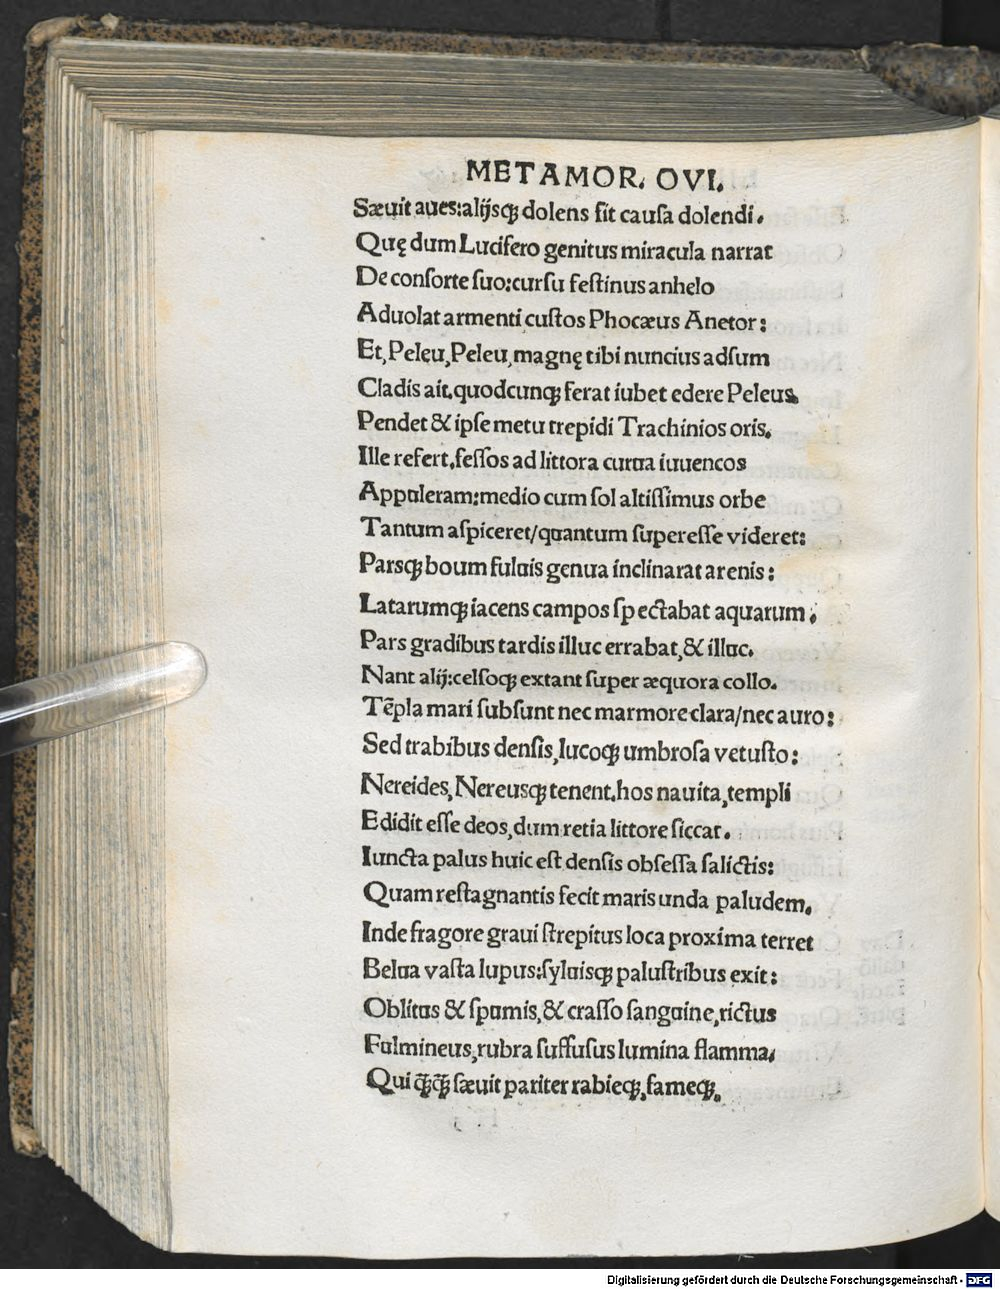 METAMOR. OVI.
Sæuit aues:alijsq; dolens ſit cauſa dolendi.
Quę dum Lucifero genitus miracula narrat
De conſorte ſuo:curſu feſtinus anhelo
Aduolat armenti cuſtos Phocæus Anetor:
Et, Peleu, Peleu, magnę tibi nuncius adſum
Cladis ait.quodcunq; ferat iubet edere Peleus.
Pendet & ipſe metu trepidi Trachinios oris.
Ille refert.feſſos ad littora curua iuuencos
Appuleram:medio cum ſol altiſſimus orbe
Tantum aſpiceret/quantum ſupereſſe videret:
Parsq; boum fuluis genua inclinarat arenis:
Latarumq; iacens campos ſpectabat aquarum.
Pars gradibus tardis illuc errabat, & illuc.
Nant alij:celſoq; extant ſuper æquora collo.
Tẽpla mari ſubſunt nec marmore clara/nec auro:
Sed trabibus denſis, lucoq; umbroſa vetuſto:
Nereides, Nereusq; tenent.hos nauita, templi
Edidit eſſe deos, dum retia littore ſiccat.
Iuncta palus huic eſt denſis obſeſſa ſalictis:
Quam reſtagnantis fecit maris unda paludem.
Inde fragore graui ſtrepitus loca proxima terret
Belua vaſta lupus:ſyluisq; paluſtribus exit:
Oblitus & ſpumis, & craſſo ſanguine, rictus
Fulmineus, rubra ſuffuſus lumina flamma.
Qui q̃q̃ ſæuit pariter rabieq;, fameq;.
Digitalisierung gefördert durch die Deutsche Forschungsgemeinschaft - DFG